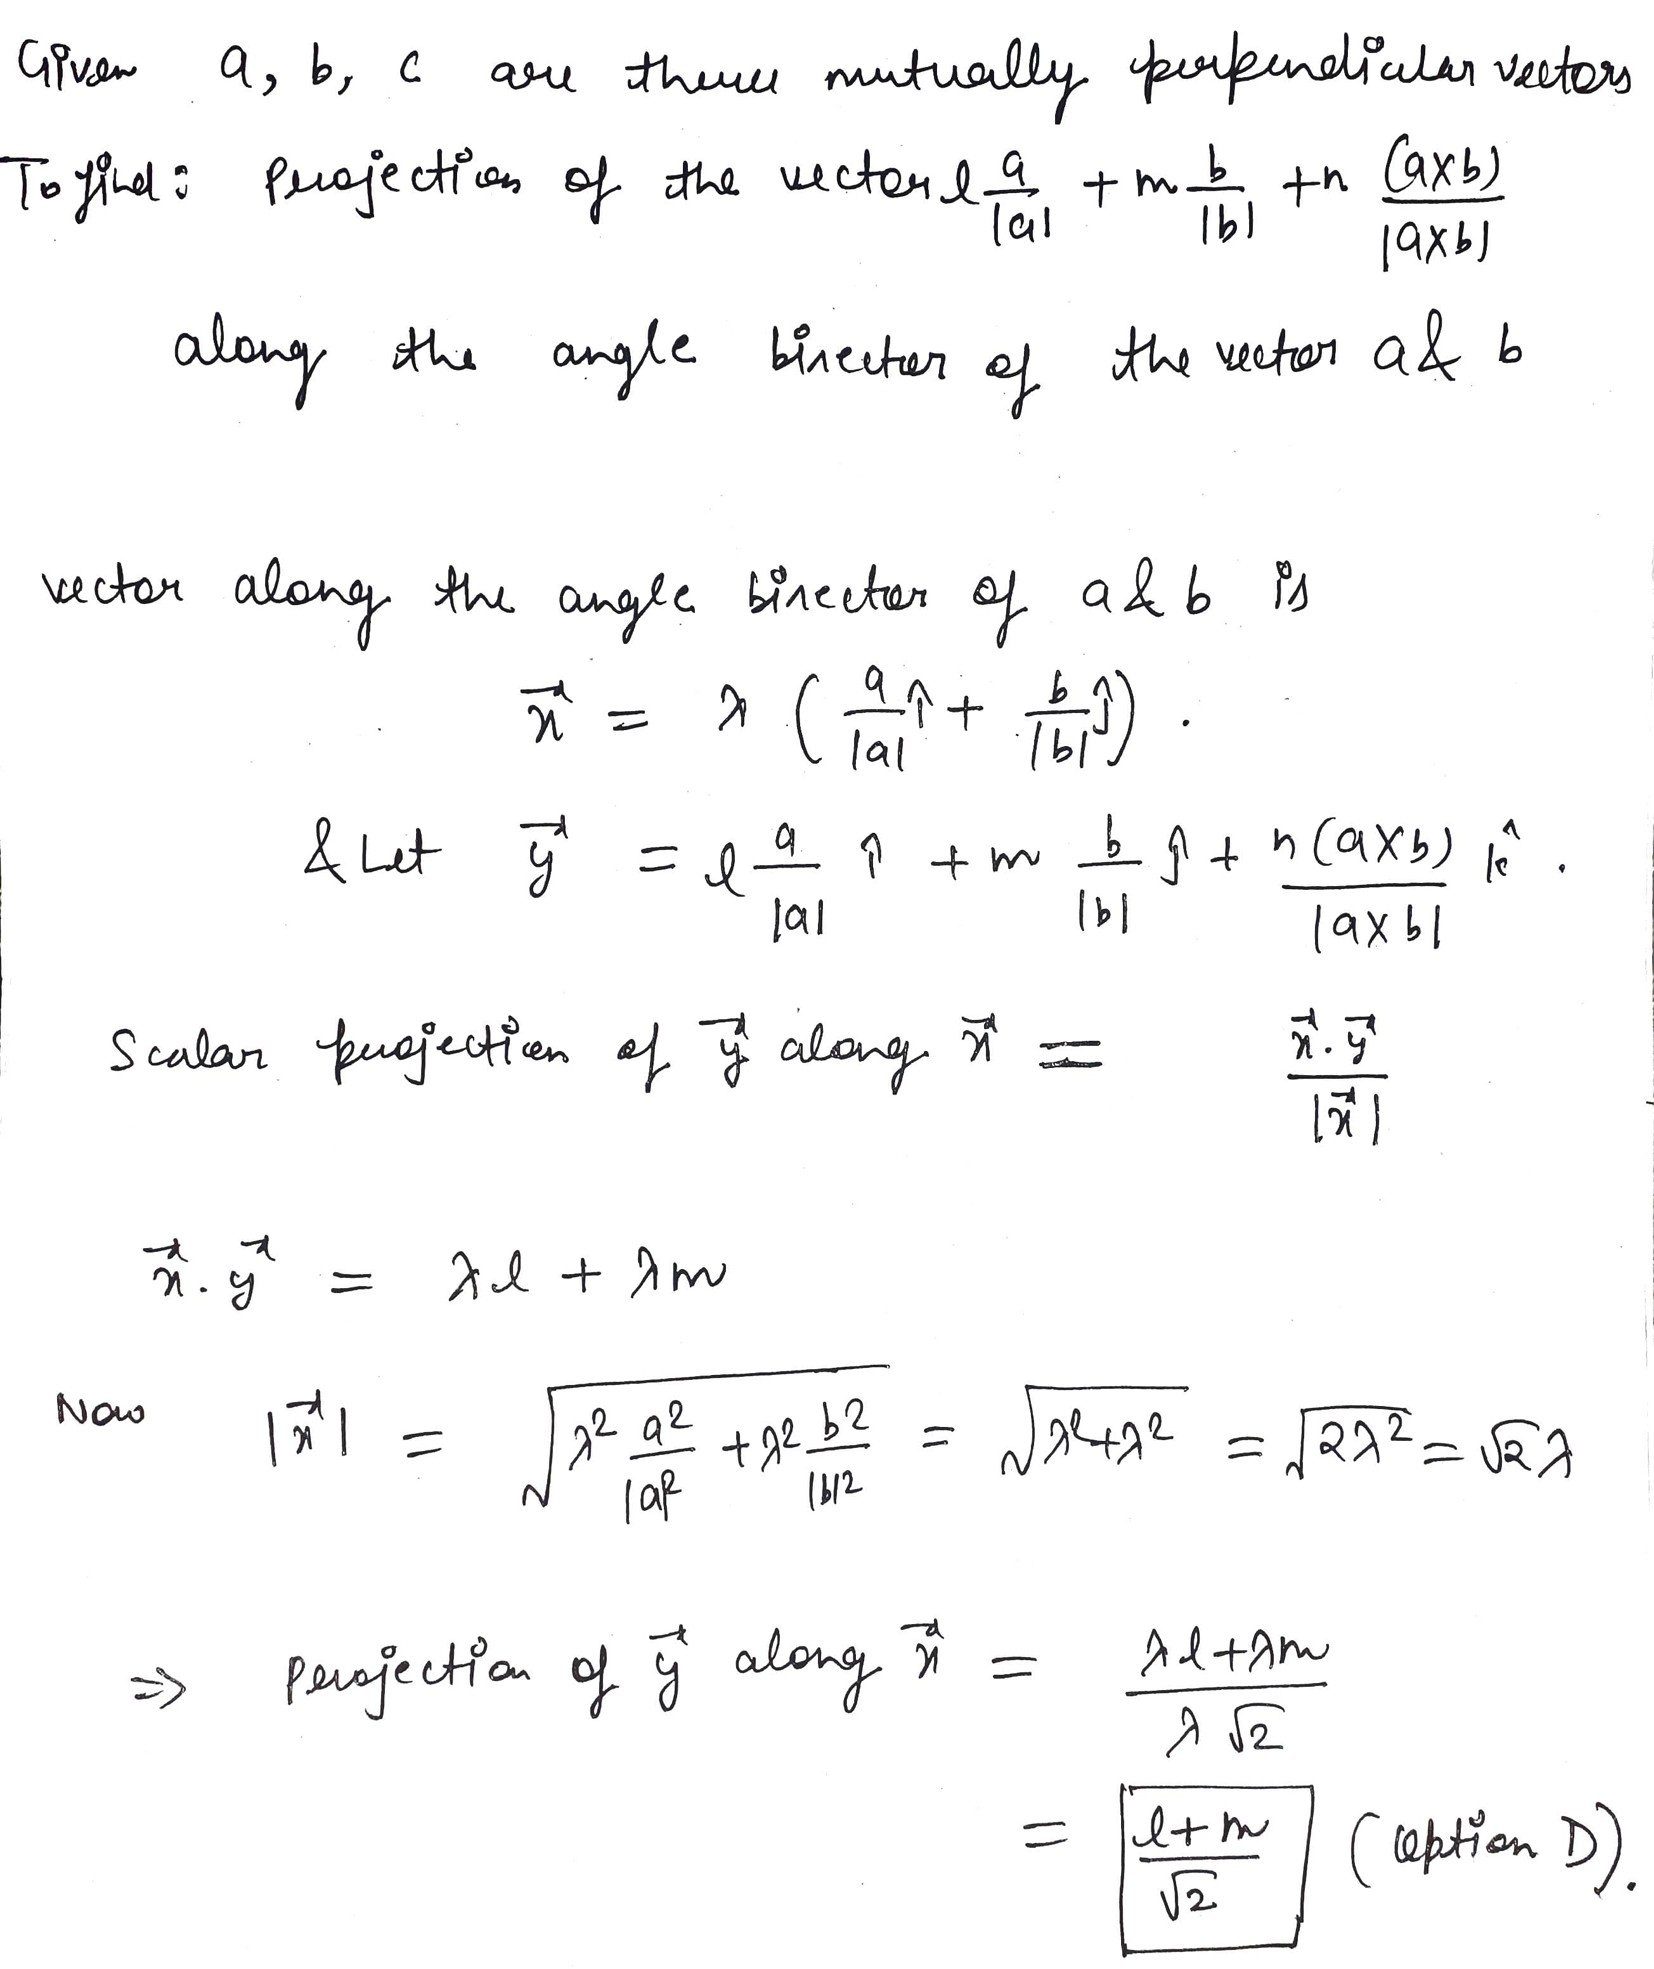 Given a, b, c are three mutually perpendicular vectors
To find: Projection of the vector l a/|a| + m b/|b| + n (a×b)/|a×b|
along the angle bisector of the vector a & b
vector along the angle bisector of a & b is
x⃗ = λ ( a/|a| î + b/|b| ĵ ) .
& Let y⃗ = l a/|a| î + m b/|b| ĵ + n(a×b)/|a×b| k̂ .
Scalar projection of y⃗ along x⃗ = x⃗.y⃗/|x⃗|
x⃗.y⃗ = λl + λm
Now |x⃗| = √(λ² a²/|a|² + λ² b²/|b|²) = √(λ²+λ²) = √(2λ²) = √2 λ
⇒ Projection of y⃗ along x⃗ = (λl+λm)/(λ√2)
= (l+m)/√2 (option D).